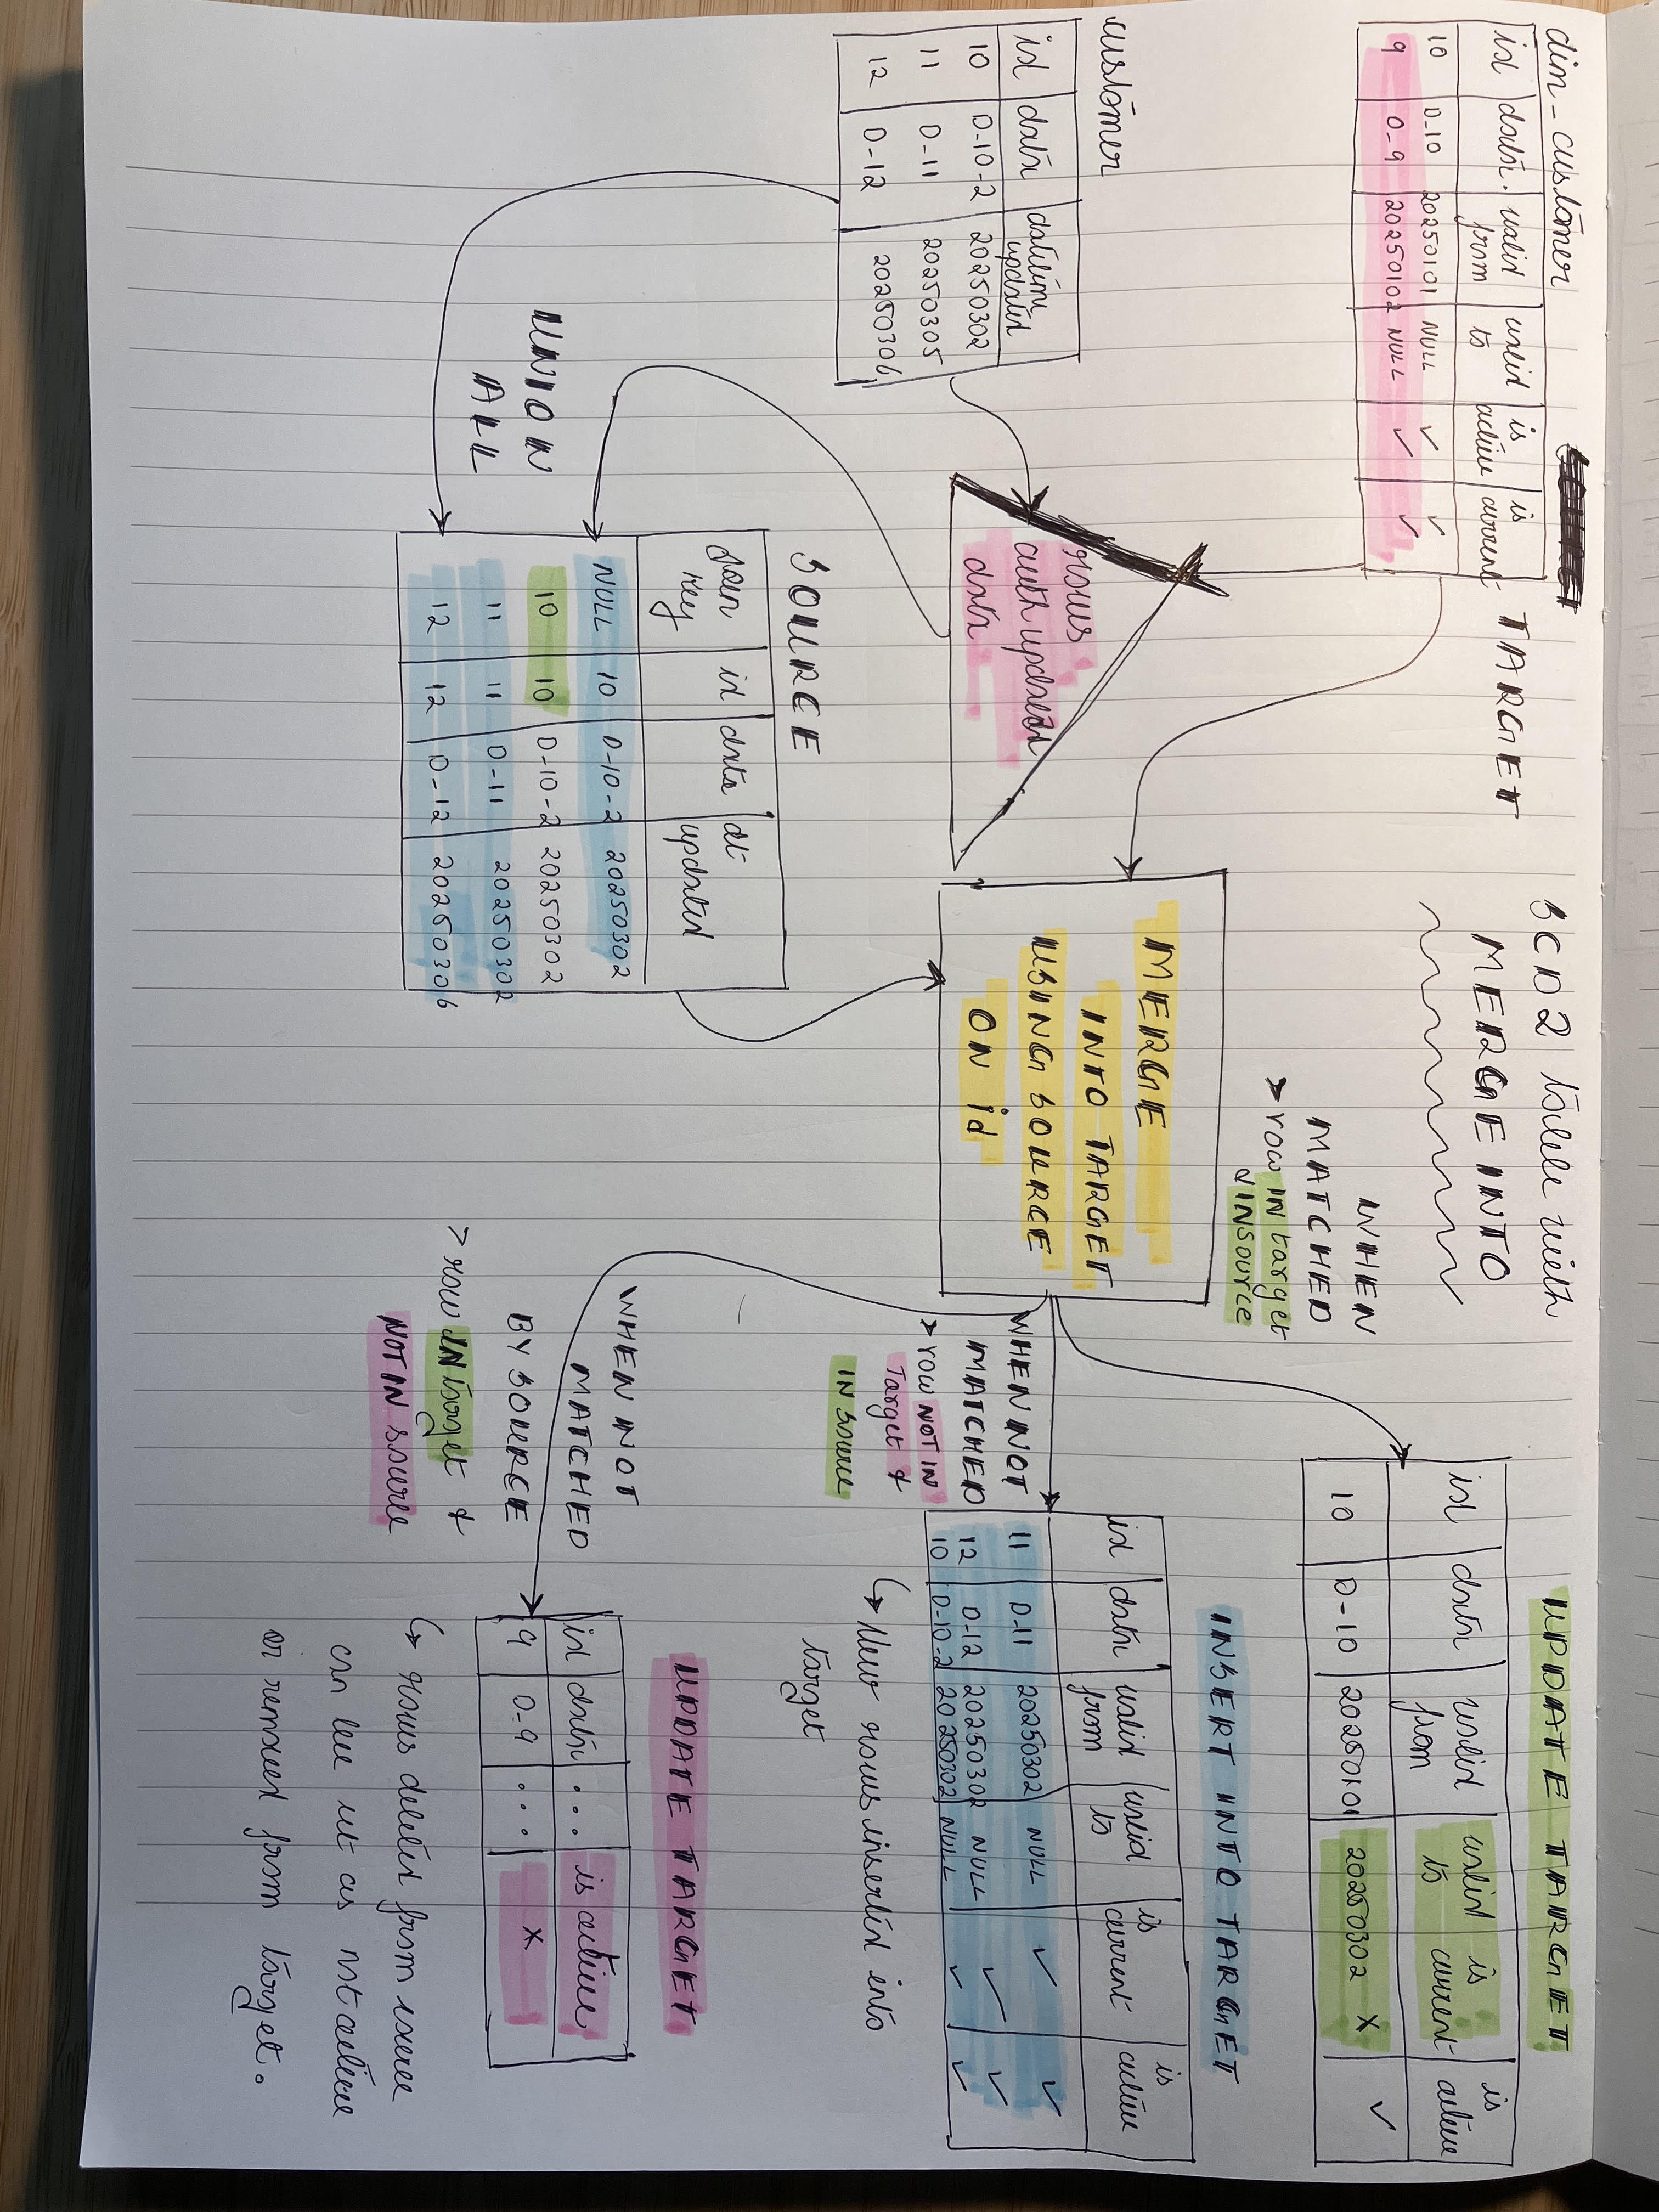 dim_customer
TARGET
id | data | valid from | valid to | is active | is current
10 | D-10 | 20250101 | NULL | ✓ | ✓
9 | D-9 | 20250102 | NULL | ✓ | ✓
SCD2 table with
MERGE INTO
customer
id | data | datetime updated
10 | D-10-2 | 20250302
11 | D-11 | 20250305
12 | D-12 | 20250306
rows
with updated
data
UNION
ALL
SOURCE
join key | id | data | dt updated
NULL | 10 | D-10-2 | 20250302
10 | 10 | D-10-2 | 20250302
11 | 11 | D-11 | 20250302
12 | 12 | D-12 | 20250306
MERGE
INTO TARGET
USING SOURCE
ON id
WHEN
MATCHED
> row IN target
IN source
UPDATE TARGET
id | data | valid from | valid to | is current | is active
10 | D-10 | 20250101 | 20250302 | X | ✓
WHEN NOT
MATCHED
> row NOT IN
Target &
IN source
INSERT INTO TARGET
id | data | valid from | valid to | is current | is active
11 | D-11 | 20250302 | NULL | ✓ | ✓
12 | D-12 | 20250302 | NULL | ✓ | ✓
10 | D-10-2 | 20250302 | NULL | ✓ | ✓
↳ New rows inserted into
target
WHEN NOT
MATCHED
BY SOURCE
> row IN target &
NOT IN source
UPDATE TARGET
id | data | ... | is active
9 | D-9 | ... | X
↳ rows deleted from source
can be set as not active
or removed from target.